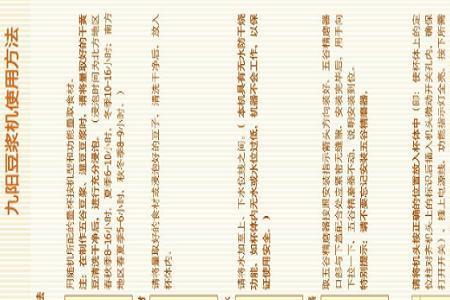 九阳豆浆机使用方法
法
用随机所配的量杯按机型和功能量取食材。
注：在制作五谷豆浆、湿豆豆浆时，请将量取好的干黄
豆清洗干净后，进行充分浸泡。（浸泡时间为北方地区
春秋季8-16小时，夏季6-10小时，冬季10-16小时；南方
地区春夏季5-6小时，秋冬季8-9小时。）
请将量取好的食材或浸泡好的豆子，清洗干净后，放入
杯体内。
请将水加至上、下水位线之间。（本机具有无水防干烧
功能，如杯体内无水或水位过低，机器不会工作，以保
证使用安全。）
取五谷精磨器按照安装指示箭头方向装好，五谷精磨器
口部与下盖配合处应紧密无缝隙，安装完毕后，用手向
下拉一下，五谷精磨器不动，说明安装到位。
特别提示：请不要忘记安装五谷精磨器。
请将机头按正确的位置放入杯体中（即：使杯体上的定
位柱对齐机头上的标识后插入机头微动开关孔内，确保
打开开关），插上电源线，功能指示灯全亮，按下所需